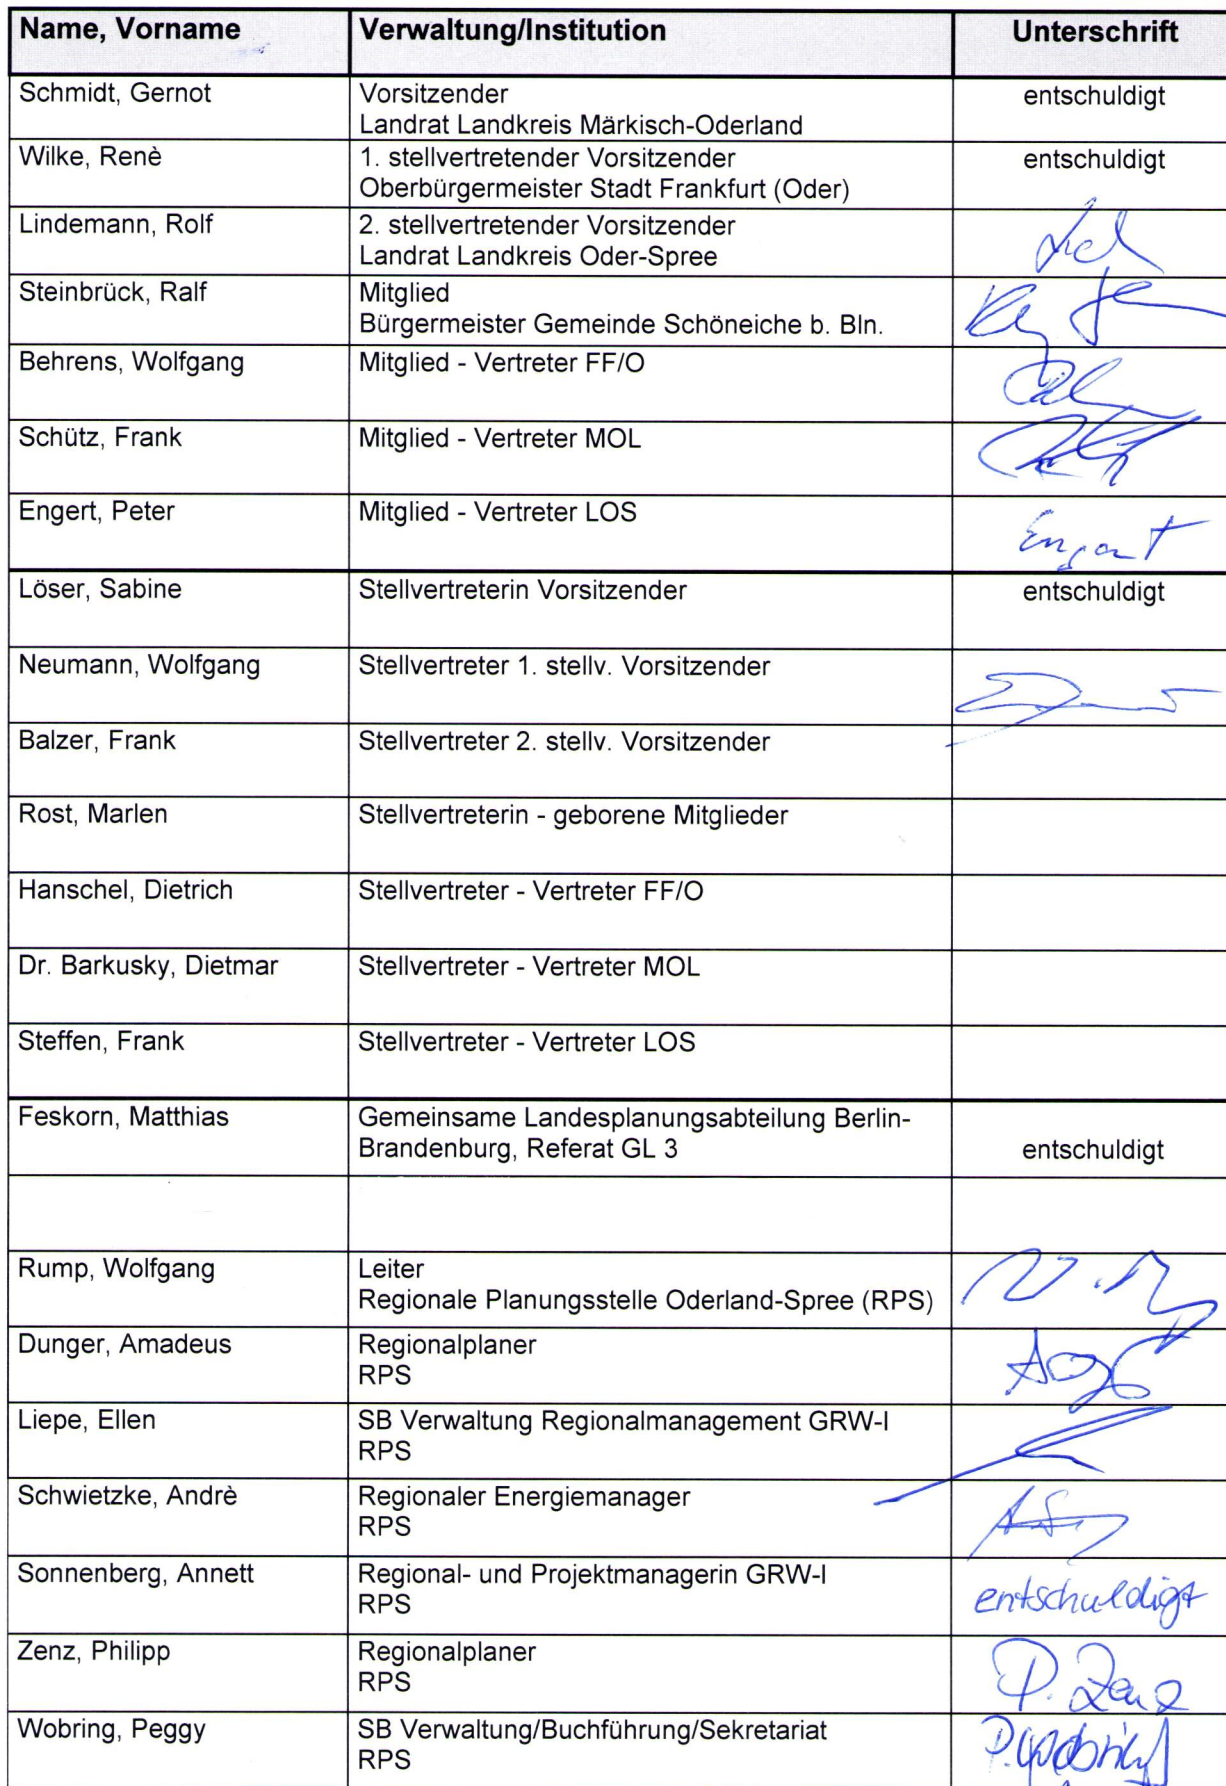 Name, Vorname Verwaltung/Institution Unterschrift
Schmidt, Gernot Vorsitzender entschuldigt
Landrat Landkreis Märkisch-Oderland
Wilke, Renè 1. stellvertretender Vorsitzender entschuldigt
Oberbürgermeister Stadt Frankfurt (Oder)
Lindemann, Rolf 2. stellvertretender Vorsitzender
Landrat Landkreis Oder-Spree
Steinbrück, Ralf Mitglied
Bürgermeister Gemeinde Schöneiche b. Bln.
Behrens, Wolfgang Mitglied - Vertreter FF/O
Schütz, Frank Mitglied - Vertreter MOL
Engert, Peter Mitglied - Vertreter LOS
Engert
Löser, Sabine Stellvertreterin Vorsitzender entschuldigt
Neumann, Wolfgang Stellvertreter 1. stellv. Vorsitzender
Balzer, Frank Stellvertreter 2. stellv. Vorsitzender
Rost, Marlen Stellvertreterin - geborene Mitglieder
Hanschel, Dietrich Stellvertreter - Vertreter FF/O
Dr. Barkusky, Dietmar Stellvertreter - Vertreter MOL
Steffen, Frank Stellvertreter - Vertreter LOS
Feskorn, Matthias Gemeinsame Landesplanungsabteilung Berlin-
Brandenburg, Referat GL 3 entschuldigt
Rump, Wolfgang Leiter
Regionale Planungsstelle Oderland-Spree (RPS)
Dunger, Amadeus Regionalplaner
RPS
Liepe, Ellen SB Verwaltung Regionalmanagement GRW-I
RPS
Schwietzke, Andrè Regionaler Energiemanager
RPS
Sonnenberg, Annett Regional- und Projektmanagerin GRW-I
RPS entschuldigt
Zenz, Philipp Regionalplaner
RPS P. Zenz
Wobring, Peggy SB Verwaltung/Buchführung/Sekretariat
RPS P. Wobring